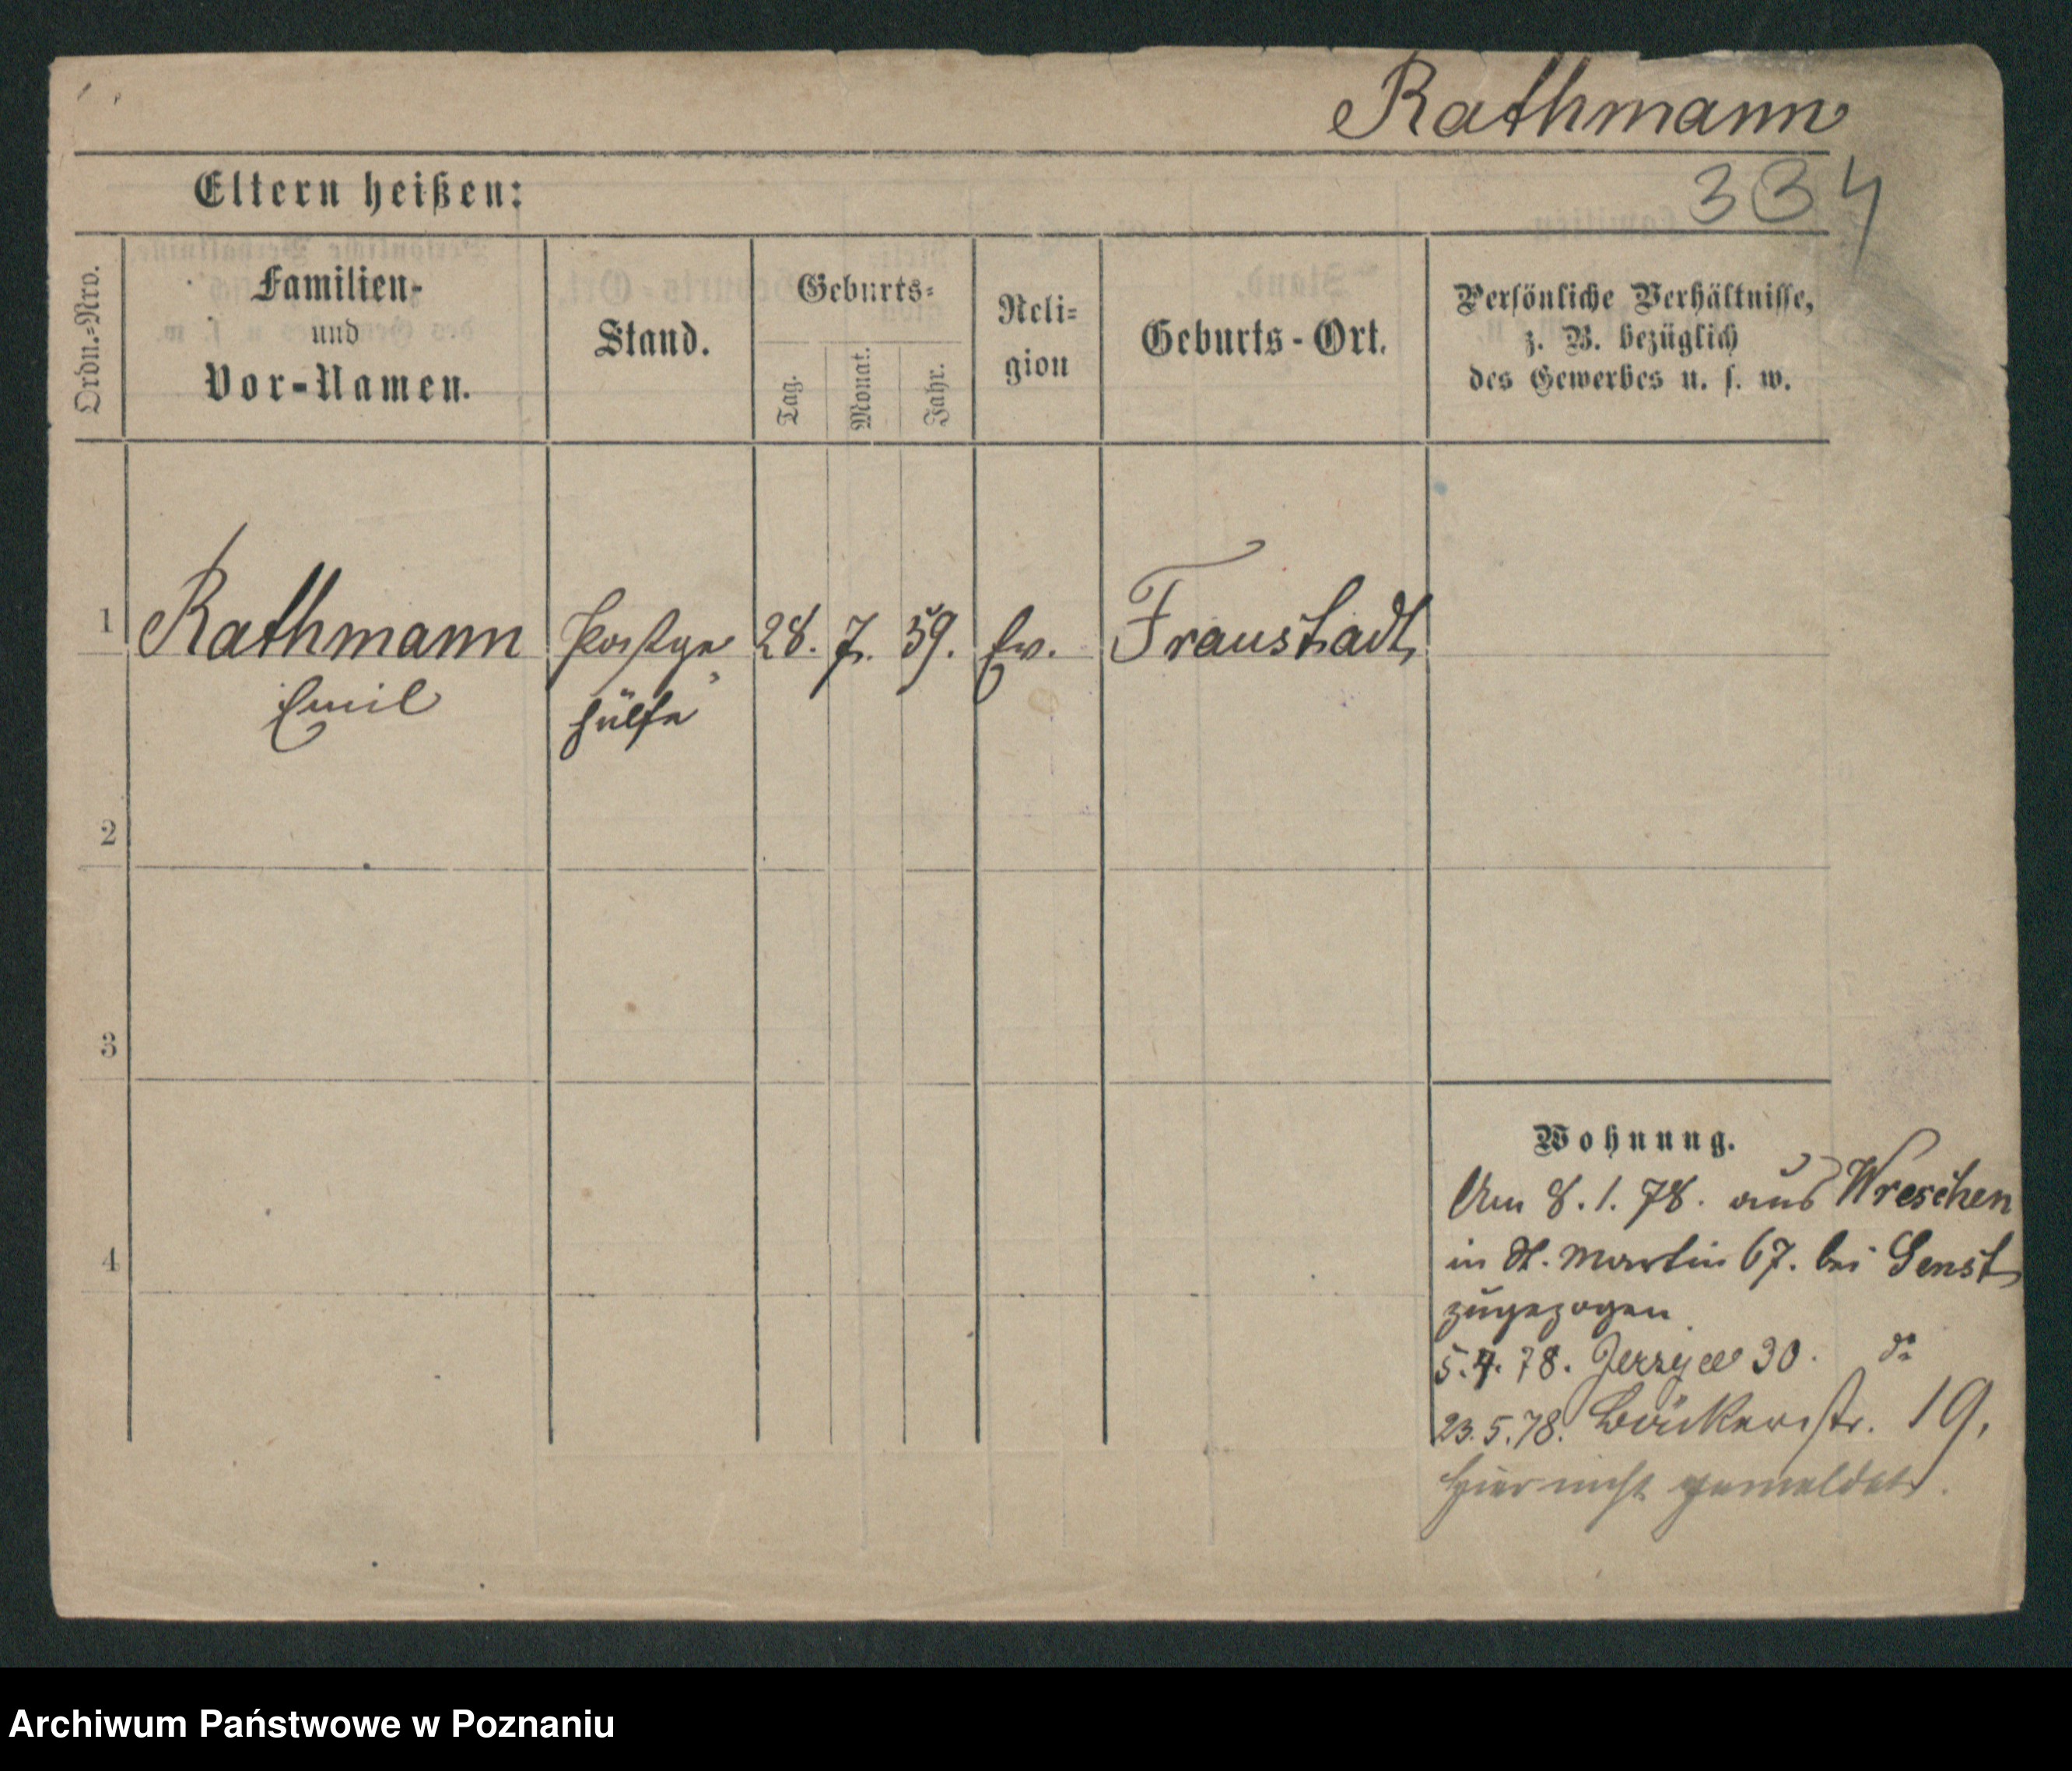 Rathmann
334
Eltern heißen:
Ordn.=Nro.
Familien-
und
Vor-Namen.
Stand.
Geburts=
Tag.
Monat.
Jahr.
Reli=
gion
Geburts-Ort.
Persönliche Verhältnisse,
z. B. bezüglich
des Gewerbes u. s. w.
1
Rathmann
Emil
Postge
hülfe
28. 7. 59.
Ev.
Fraustadt
2
3
4
Wohnung.
Am 8.1.78. aus Wreschen
in St. Martin 67. bei Senst
zugezogen
5.4.78. Jerzyce 30. do
23.5.78. Bäckerstr. 19.
hier nicht gemeldet.
Archiwum Państwowe w Poznaniu